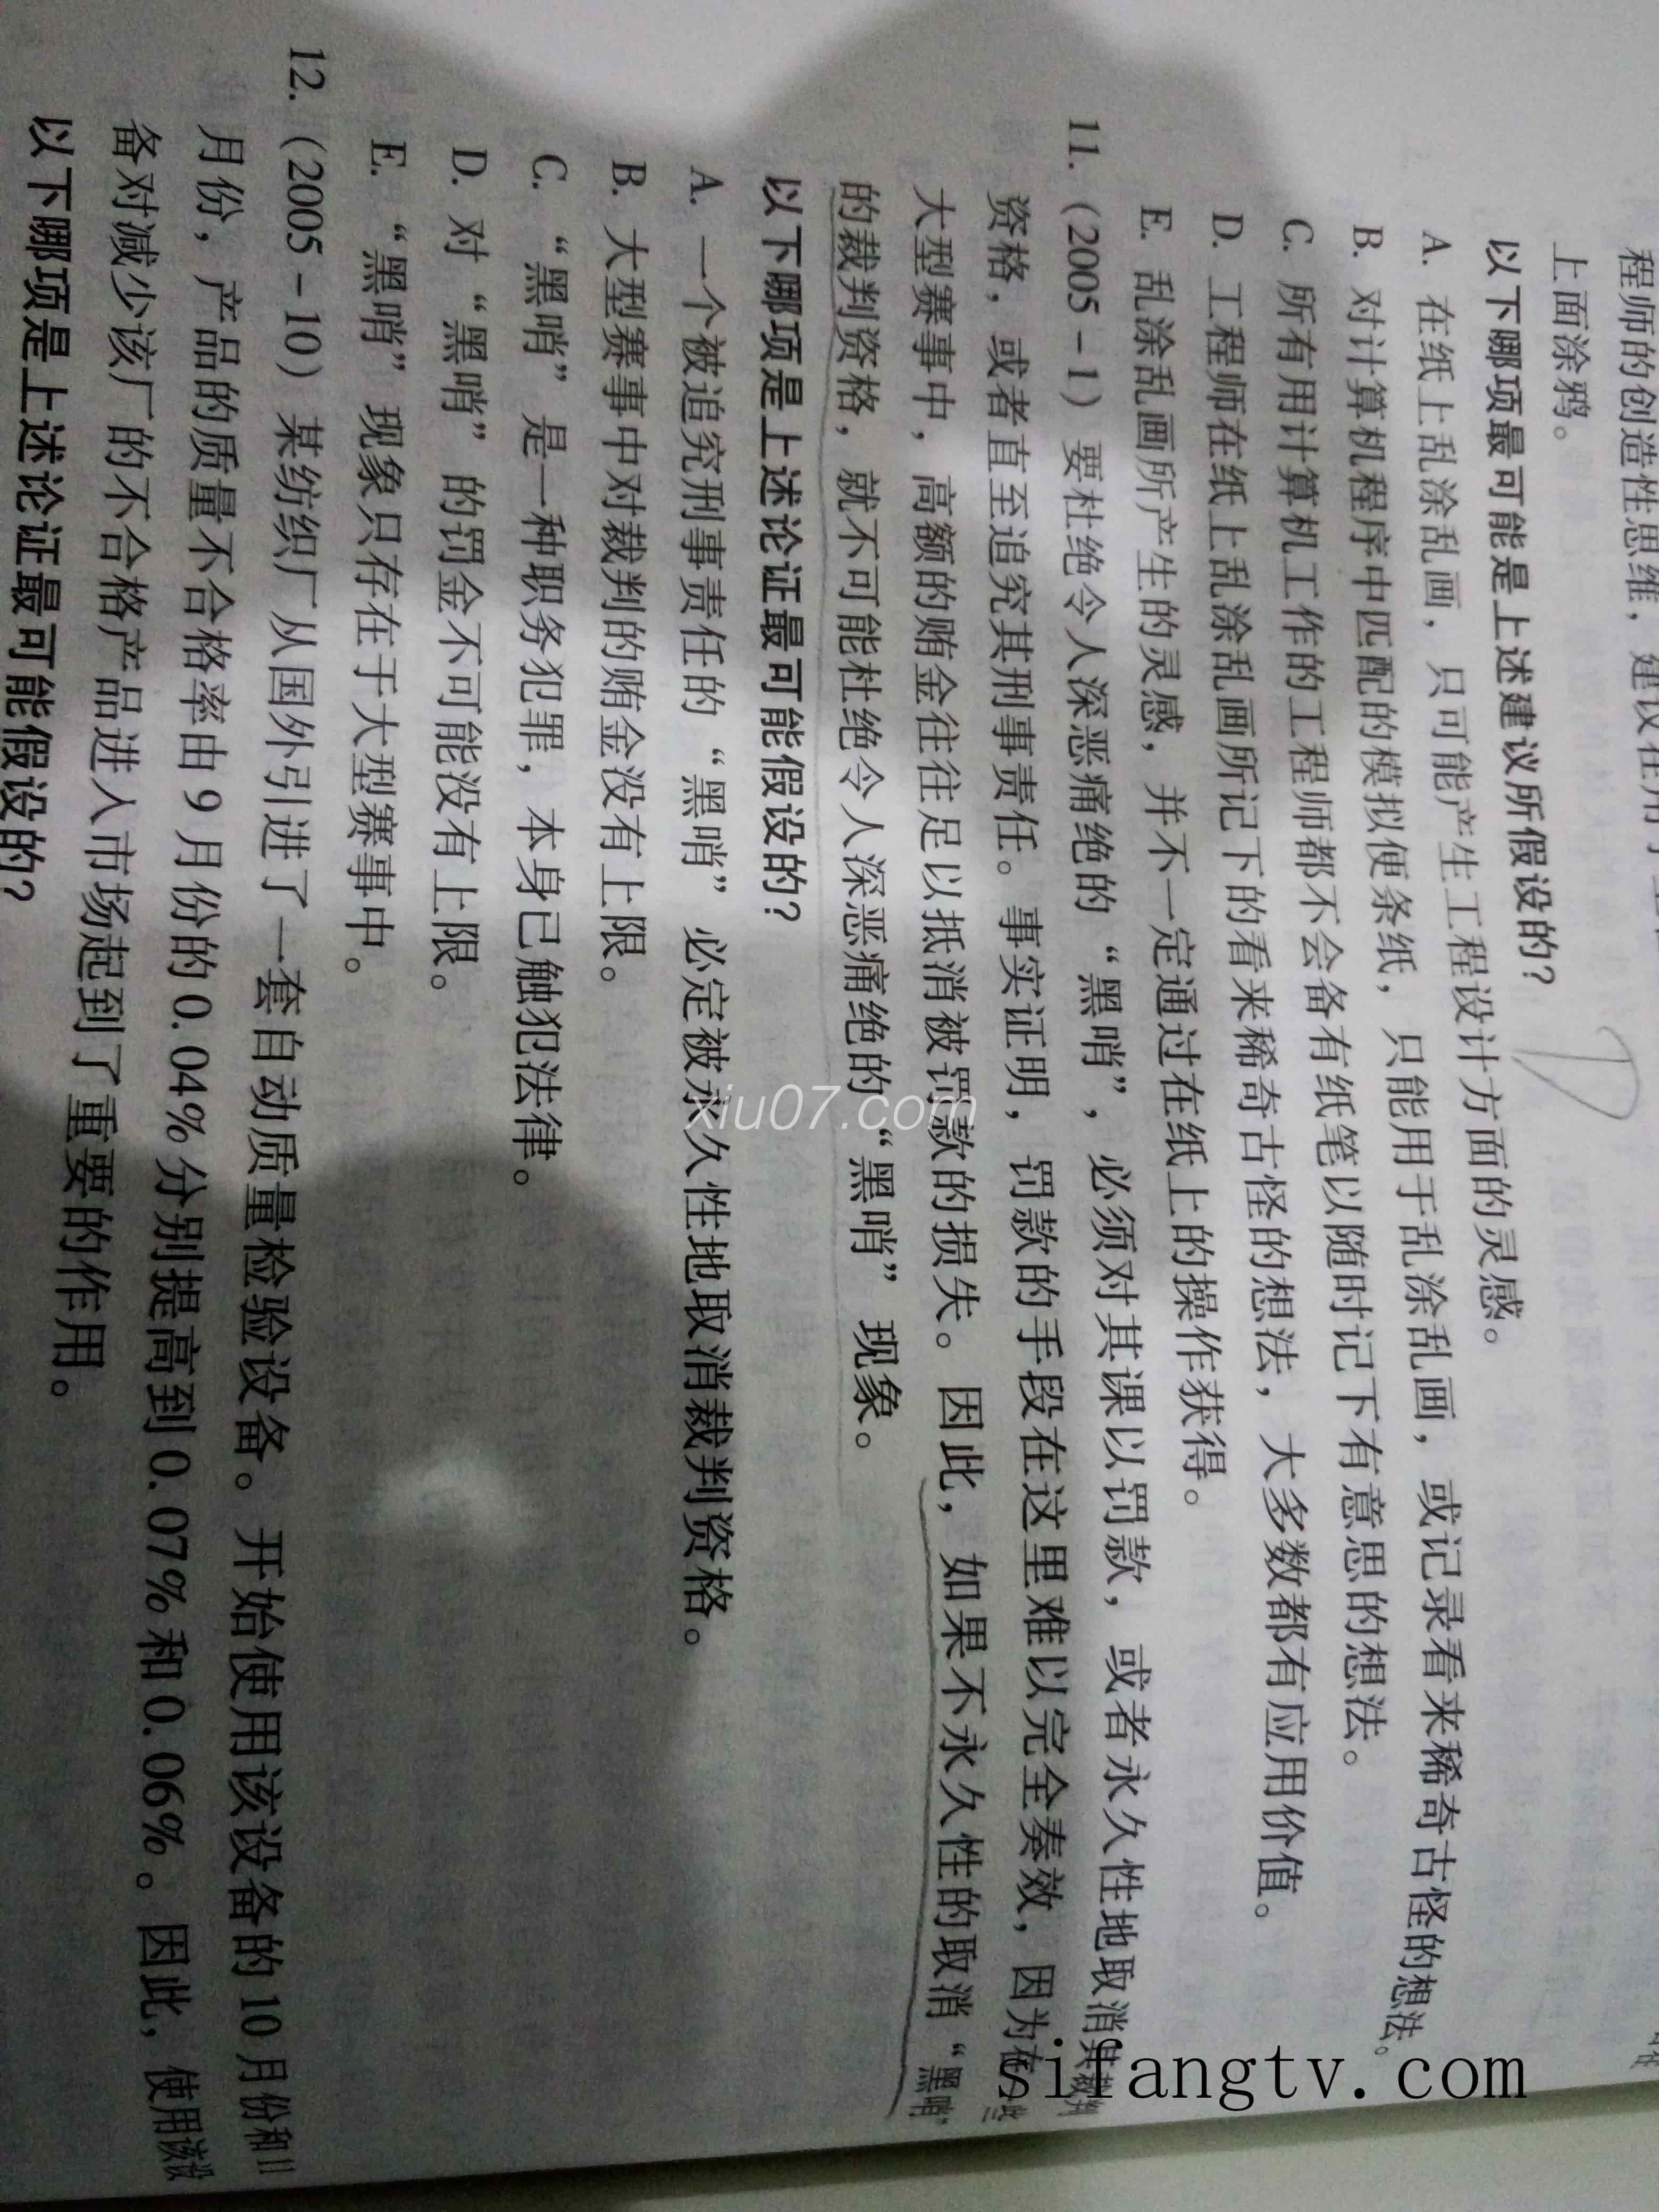 程师的创造性思维，建议在用于工
上面涂鸦。
以下哪项最可能是上述建议所假设的？
A. 在纸上乱涂乱画，只可能产生工程设计方面的灵感。
B. 对计算机程序中匹配的模拟便条纸，只能用于乱涂乱画，或记录看来稀奇古怪的想法。
C. 所有用计算机工作的工程师都不会备有纸笔以随时记下有意思的想法。
D. 工程师在纸上乱涂乱画所记下的看来稀奇古怪的想法，大多数都有应用价值。
E. 乱涂乱画所产生的灵感，并不一定通过在纸上的操作获得。
D
11.（2005－1）要杜绝令人深恶痛绝的“黑哨”，必须对其课以罚款，或者永久性地取消其裁判
资格，或者直至追究其刑事责任。事实证明，罚款的手段在这里难以完全奏效，因为在一些
大型赛事中，高额的贿金往往足以抵消被罚款的损失。因此，如果不永久性的取消“黑哨”
的裁判资格，就不可能杜绝令人深恶痛绝的“黑哨”现象。
以下哪项是上述论证最可能假设的？
A. 一个被追究刑事责任的“黑哨”必定被永久性地取消裁判资格。
B. 大型赛事中对裁判的贿金没有上限。
C. “黑哨”是一种职务犯罪，本身已触犯法律。
D. 对“黑哨”的罚金不可能没有上限。
E. “黑哨”现象只存在于大型赛事中。
12.（2005－10）某纺织厂从国外引进了一套自动质量检验设备。开始使用该设备的10月份和11
月份，产品的质量不合格率由9月份的0.04%分别提高到0.07%和0.06%。因此，使用该设
备对减少该厂的不合格产品进入市场起到了重要的作用。
以下哪项是上述论证最可能假设的？
xiu07.com
sifangtv.com